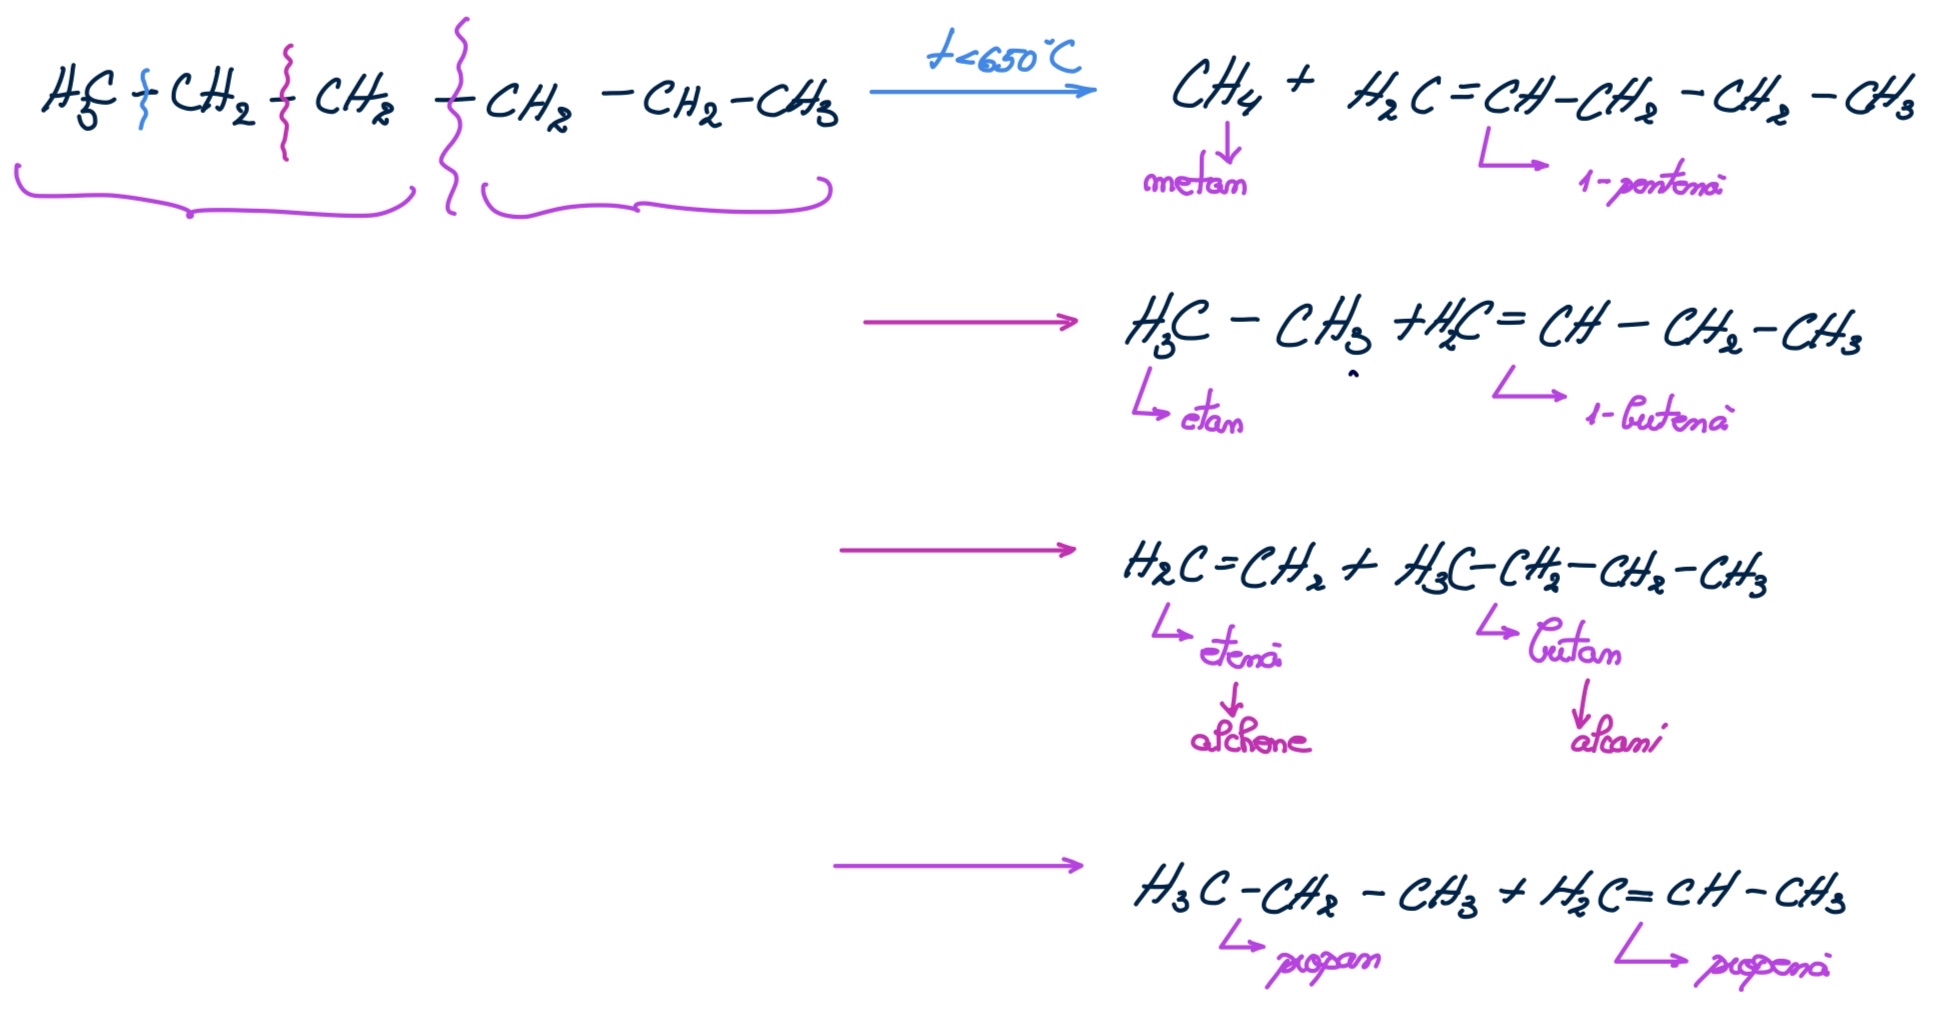 H₃C - CH₂ - CH₂ - CH₂ - CH₂ - CH₃ t<650°C CH₄ + H₂C=CH-CH₂-CH₂-CH₃
metan 1-pentenă
H₃C - CH₃ + H₂C = CH - CH₂ - CH₃
etan 1-butenă
H₂C=CH₂ + H₃C-CH₂-CH₂-CH₃
etenă butan
alchene alcani
H₃C-CH₂-CH₃ + H₂C=CH-CH₃
propan propenă